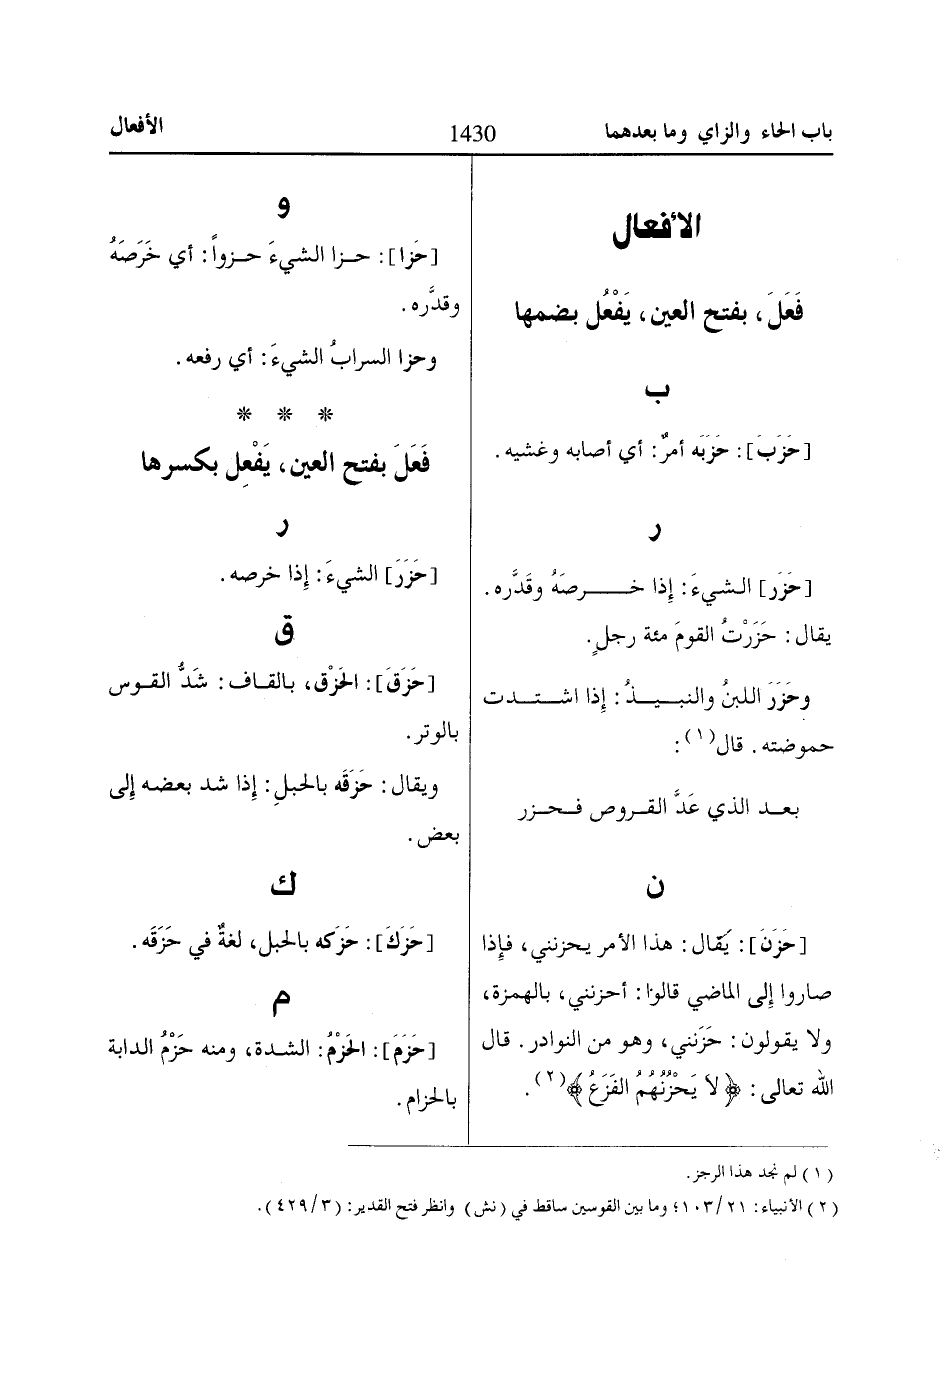 باب الحاء والزاي وما بعدهما 1430 الأفعال
الأفعال
فَعَلَ، بفتح العين، يَفْعُل بضمها
ب
[حَزَبَ]: حَزَبَه أمرٌ: أي أصابه وغشيه.
ر
[حَزَر] الشيءَ: إذا خرصهُ وقَدَّره.
يقال: حَزَرْتُ القومَ مئة رجلٍ.
وحَزَرَ اللبنُ والنبيذُ: إذا اشتدت
حموضته. قال(١):
بعد الذي عَدَّ القروص فحزر
ن
[حَزَنَ]: يَقال: هذا الأمر يحزنني، فإِذا
صاروا إلى الماضي قالوا: أحزنني، بالهمزة،
ولا يقولون: حَزَنني، وهو من النوادر. قال
الله تعالى: ﴿لاَ يَحْزُنُهُمُ الفَزَعُ﴾(٢).
و
[حَزا]: حزا الشيءَ حزواً: أي خَرَصَهُ
وقدَّره.
وحزا السرابُ الشيءَ: أي رفعه.
* * *
فَعَلَ بفتح العين، يَفْعِل بكسرها
ر
[حَزَرَ] الشيءَ: إذا خرصه.
ق
[حَزَقَ]: الحَزْق، بالقاف: شَدُّ القوس
بالوتر.
ويقال: حَزَقَه بالحبلِ: إذا شد بعضه إلى
بعض.
ك
[حَزَكَ]: حَزَكه بالحبل، لغةٌ في حَزَقَه.
م
[حَزَمَ]: الحَزْمُ: الشدة، ومنه حَزْمُ الدابة
بالحزام.
(١) لم نجد هذا الرجز.
(٢) الأنبياء: ١٠٣/٢١؛ وما بين القوسين ساقط في (نش) وانظر فتح القدير: (٤٢٩/٣).